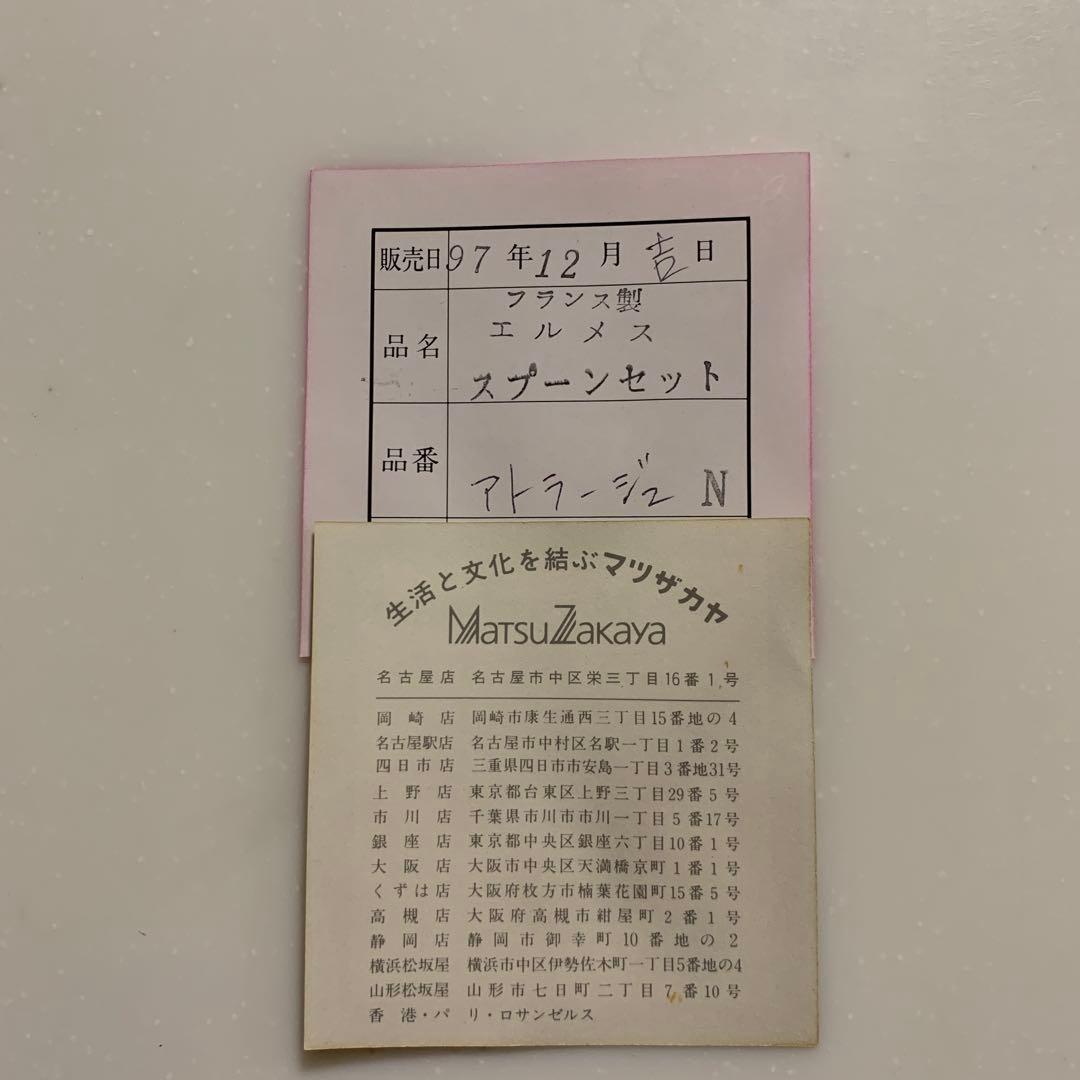 販売日 97年12月吉日
品名 フランス製
エルメス
スプーンセット
品番 アトラージュ N
生活と文化を結ぶマツザカヤ
MatsuZakaya
名古屋店 名古屋市中区栄三丁目16番1号
岡崎店 岡崎市康生通西三丁目15番地の4
名古屋駅店 名古屋市中村区名駅一丁目1番2号
四日市店 三重県四日市市安島一丁目3番地31号
上野店 東京都台東区上野三丁目29番5号
市川店 千葉県市川市市川一丁目5番17号
銀座店 東京都中央区銀座六丁目10番1号
大阪店 大阪市中央区天満橋京町1番1号
くずは店 大阪府枚方市楠葉花園町15番5号
高槻店 大阪府高槻市紺屋町2番1号
静岡店 静岡市御幸町10番地の2
横浜松坂屋 横浜市中区伊勢佐木町一丁目5番地の4
山形松坂屋 山形市七日町二丁目7番10号
香港・パリ・ロサンゼルス